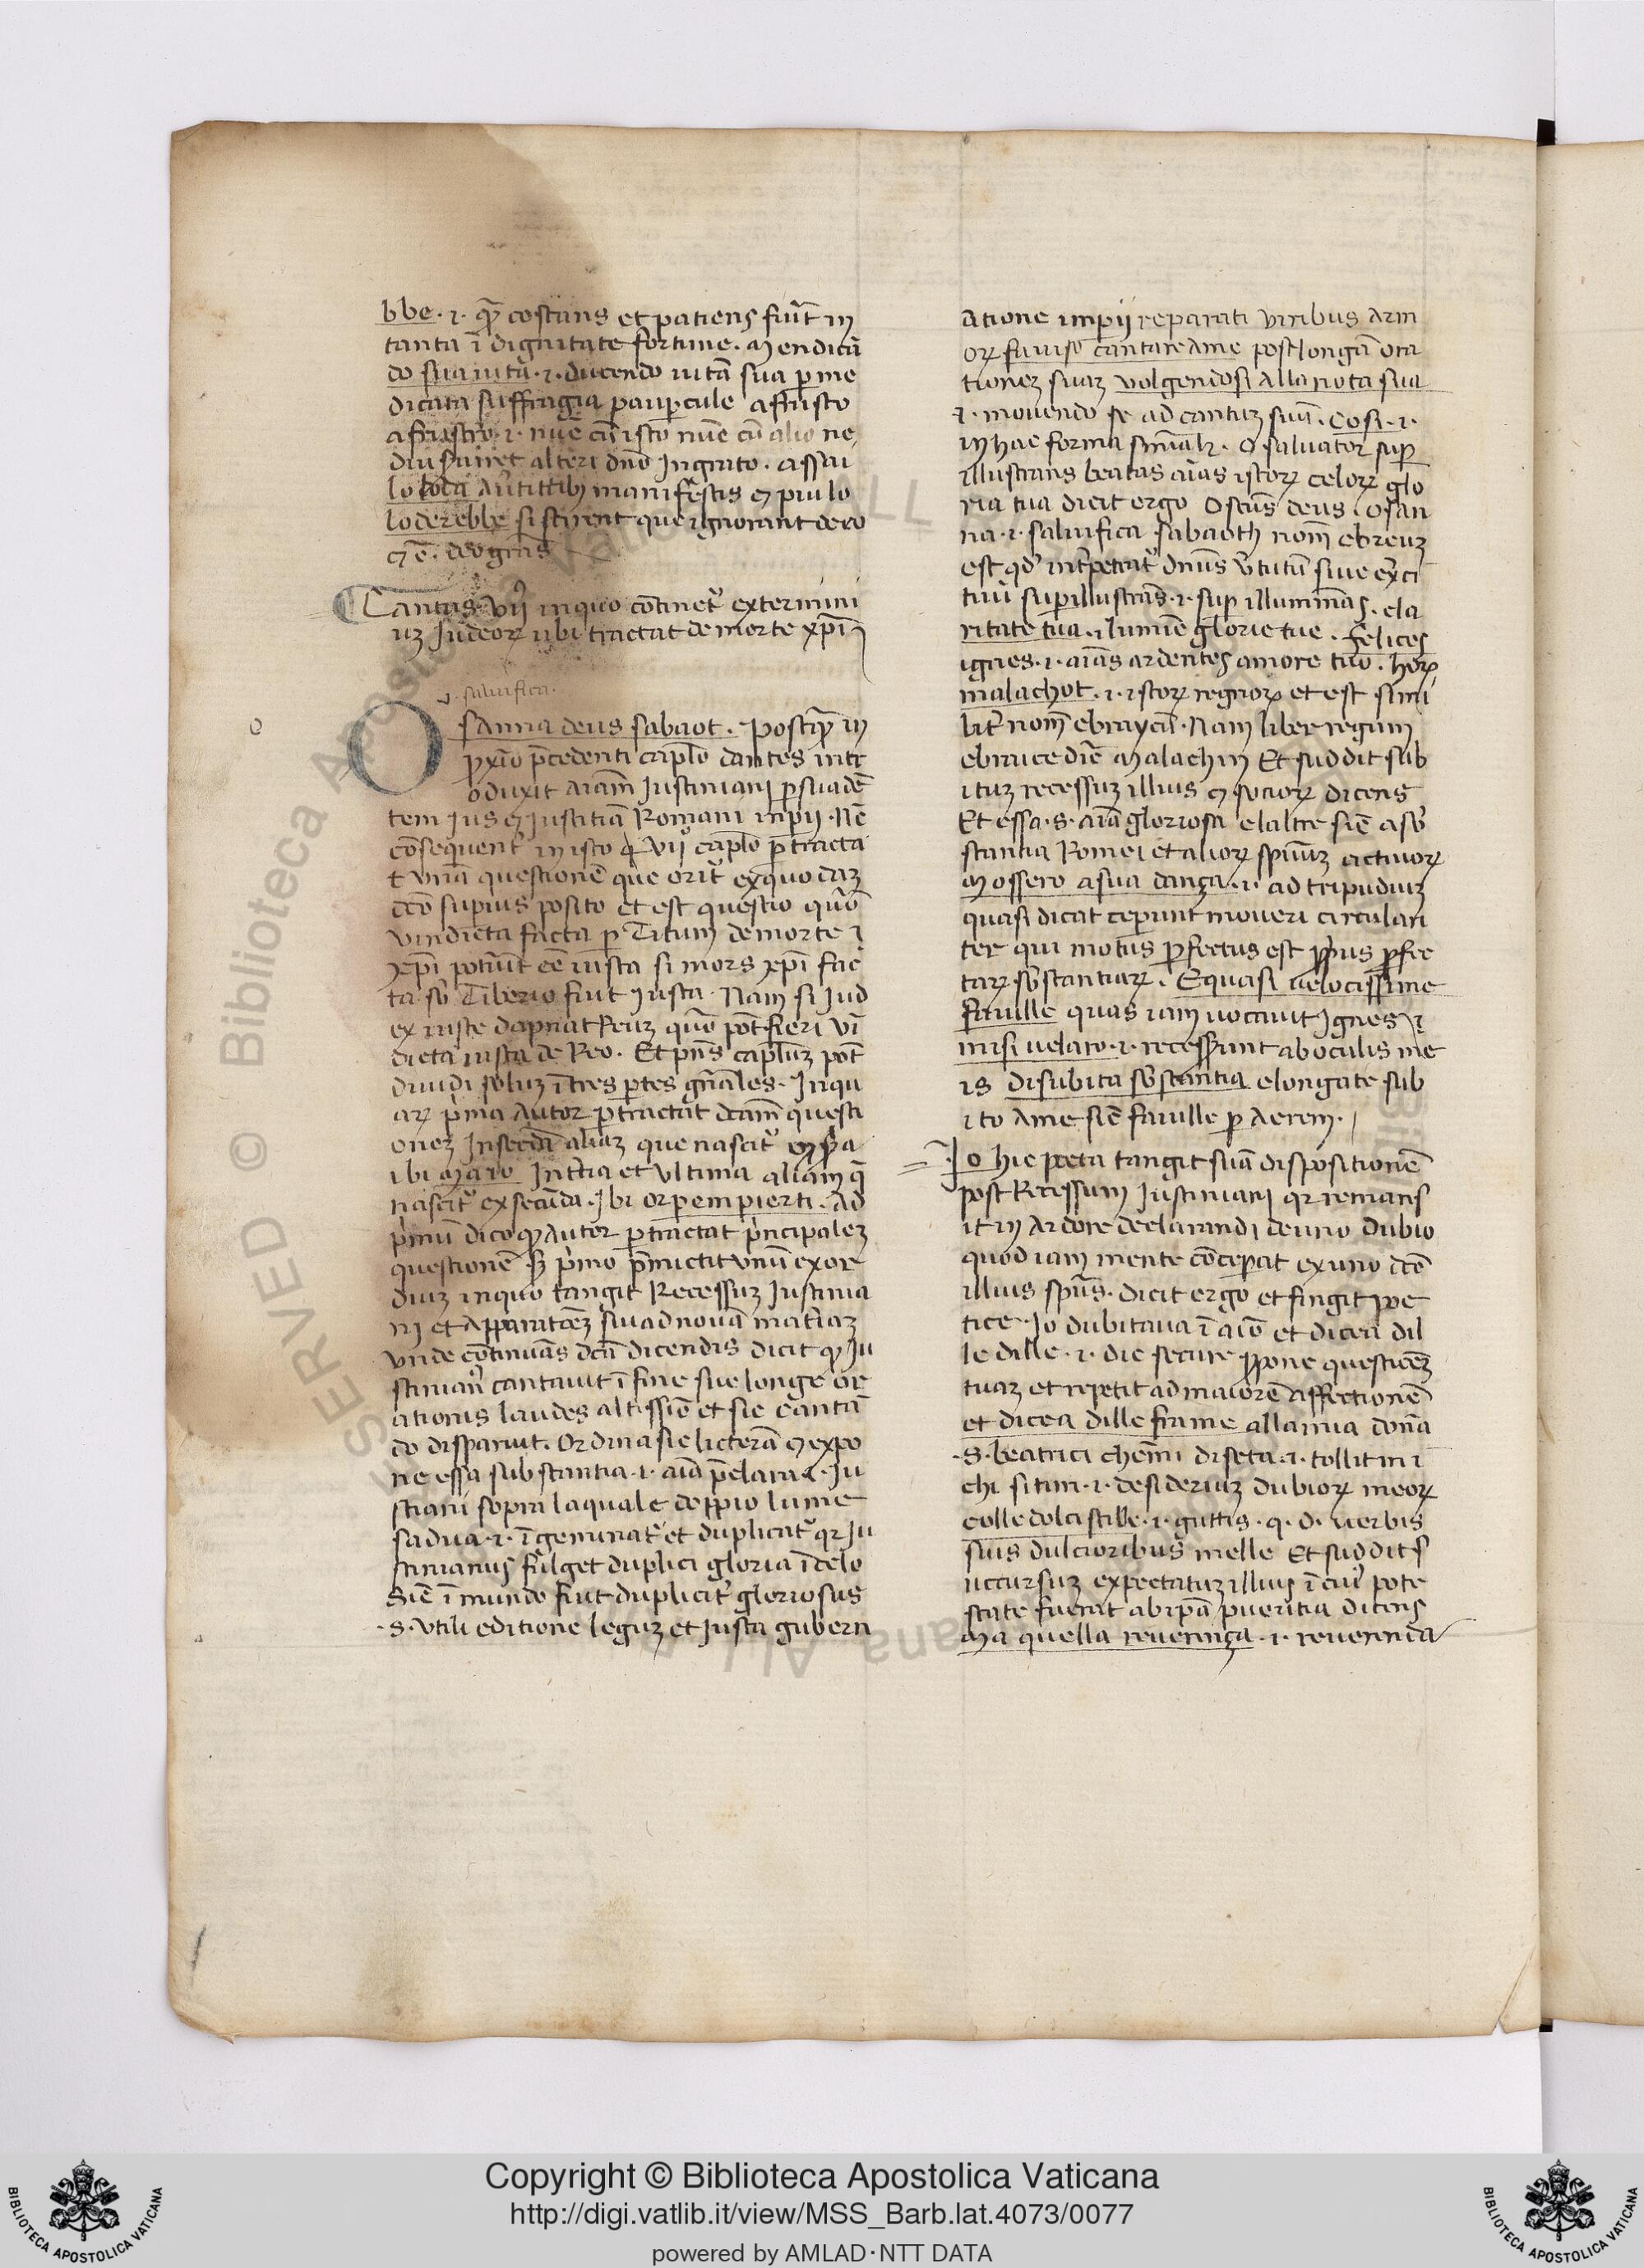 bbe .i. q̄ costans et patiens fuit in
tanta īdignitate fortune. Mendicā
do sua uitā .i. ducendo uitā sua p me
dicata suffragia paupcule afrusto
afrustro .i. nūc cū isto nūc cū alio ne
diu alteri dn̄o Ingrato. assai
lo loda manifestis ⁊ piu lo
loderebbe si scirent que ignorant de eo
⁊c̄. deo gr̄as
Cantus vij inquo contineᵗ extermini
uz Judeoꝝ ubi tractat de morte xp̄i
.i. saluifica.
Osanna deus sabaot. Postq̄ in
pxīo p̄cedenti capl̄o dantes intr
oduxit aīam Justiniani psuadē
tem Jus ⁊ Justitiā Romani inpij. Nc̄
cōsequenṫ in isto vij capl̄o ptracta
t vnā questionē que oriṫ exquodaz
dc̄o supius posito et est questio quō
vindicta facta p Titum de morte
xp̄i potuit eē iusta si mors xp̄i fac
ta sb Tiberio fuit Justa. Nam si Jud
ex iuste dapnat Reuz quō pōt fieri vī
dicta iusta de Reo. Et pn̄s capl̄uz pōt
diuidi soluz ī tres ptes gn̄ales. Inqu
aꝝ p̄ma Autor ptractat dc̄am questi
onez Insecūda aliaz que nasciṫ ex pa
ibi Maro Intt̄ia et vltima aliam q̄
nasciṫ exsecūda. Ibi orpempierti. Ad
p̄mū dico ꝙ Autor ptractat p̄ncipalez
questionē ꝫ p̄mo p̄mictit vnū exor
diuz inquo tangit Recessuz Justinia
ni et Apparitōez suā ad nouā mat̄iaz
vnde cōtinuās dc̄ā dicendis dicit ꝙ Ju
stinianꝰ cantauit ī fine sue longe or
ationis laudes altissīe et sic cantā
do disparuit. Ordina sic licterā ⁊ expo
ne essa substantia .i. aīa p̄clara Ju
stiani sopra laquale doppio lume
sadua .i. īgeminaṫ et duplicaṫ qꝛ Ju
stinianus fulget duplici gloria ī celo
Sic̄ ī mundo fuit dupliciṫ gloriosus
.S. vtili editione leguz et Justa gubern
atione inpij reparati viribus Arm
oꝝ fu uiso cantare ame post longā ora
tionez suaz volgendosi alla nota sua
.i. mouendo se ad cantuz suū. Cosi .i.
in hac forma O saluator sup
illustrans beatas aīas istoꝝ celoꝝ glo
ria tua dicit ergo O scūs deus. Osan
na .i. saluifica sabaoth nomē ebreuz
est qd' int̄petaṫ dn̄us v̄tutū siue ex̄ci
tuū supillustrās .i. sup illuminās. cla
ritate tua .i. lumīe glorie tue. felices
ignes .i. aīas ardentes amore tuo. hoꝝ
malachot .i. istoꝝ regnoꝝ et est simi
liṫ nomē ebraycū. Nam liber regum
ebrayce dic̄ Malachin Et suddit sub
ituz recessuz illius ⁊ socioꝝ dicens
Et essa .s. aīa gloriosa elaltre sic̄ a sb
stantia Romei et alioꝝ spirituū actiuoꝝ
Mossero asua dança .i. ad tripudiuz
quasi dicat ceperunt moueri circulari
ter qui motus pfectus est pprius pfec
taꝝ sb̄stantiaꝝ. Equasi uelocissime
fauille quas iam uocauit Ignes .i.
misi uelaro .i. recesserunt aboculis me
is disubita sb̄stantia elongate sub
ito Ame sic̄ fauille p Aerem.
Io hic poeta tangit suā dispositionē
post Recessum Justiniani qꝛ remans
it in Ardore declarandi de uno dubio
quod iam mente cōceperat ex uno dc̄o
illius spūs. dicit ergo et fingit poe
tice. Io dubitaua ī aīo et dicea dil
le dille .i. dic secure ppone questiōez
tuaz et repetit ad maiorē affectionē
et dicea dille frame allamia donā
.S. beatrici chemi diseta .i. tollit mi
chi sitim .i. desideriuz dubioꝝ meoꝝ
colle dolci stille .i. guttis .q. d. uerbis
suis dulcioribus melle Et suddit s
uccursuz expectatuz illius ī cuiꝰ pote
state fuerat ab ipā pueritia dicens
Ma quella reuerença .i. reuerenda
Copyright © Biblioteca Apostolica Vaticana
http://digi.vatlib.it/view/MSS_Barb.lat.4073/0077
powered by AMLAD·NTT DATA
BIBLIOTECA APOSTOLICA VATICANA
BIBLIOTECA APOSTOLICA VATICANA